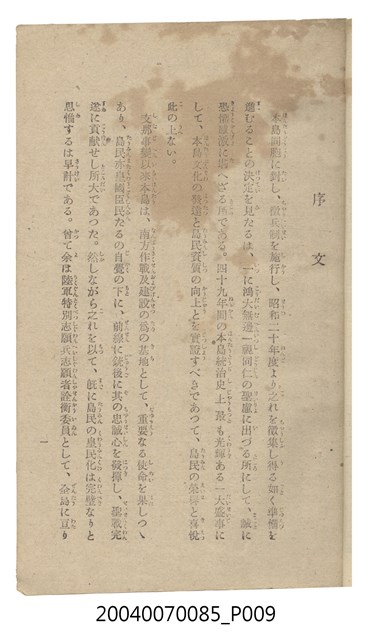 序文
本島同胞に對し、徵兵制を施行し、昭和二十年度より之れを徵集し得る如く準備を
進むることの決定を見たるは、一に鴻大無邊一視同仁の聖慮に出づる所にして、誠に
恐懼感激に堪へざる所である。四十九年間の本島統治史上、最も光輝ある一大盛事に
して、本島文化の發達と島民資質の向上とを實證すべきであつて、島民の榮譽と喜悅
此の上ない。
支那事變以來本島は、南方作戰及建設の爲の基地として、重要なる使命を果しつゝ
あり、島民亦皇國臣民たるの自覺の下に、前線に銃後に其の忠誠心を發揮し、聖戰完
遂に貢獻せし所大であつた。然しながら之れを以て、旣に島民の皇民化は完璧なりと
思惟するは早計である。曾て余は陸軍特別志願兵志願者詮衡委員として、全島に亘り
一
20040070085_P009